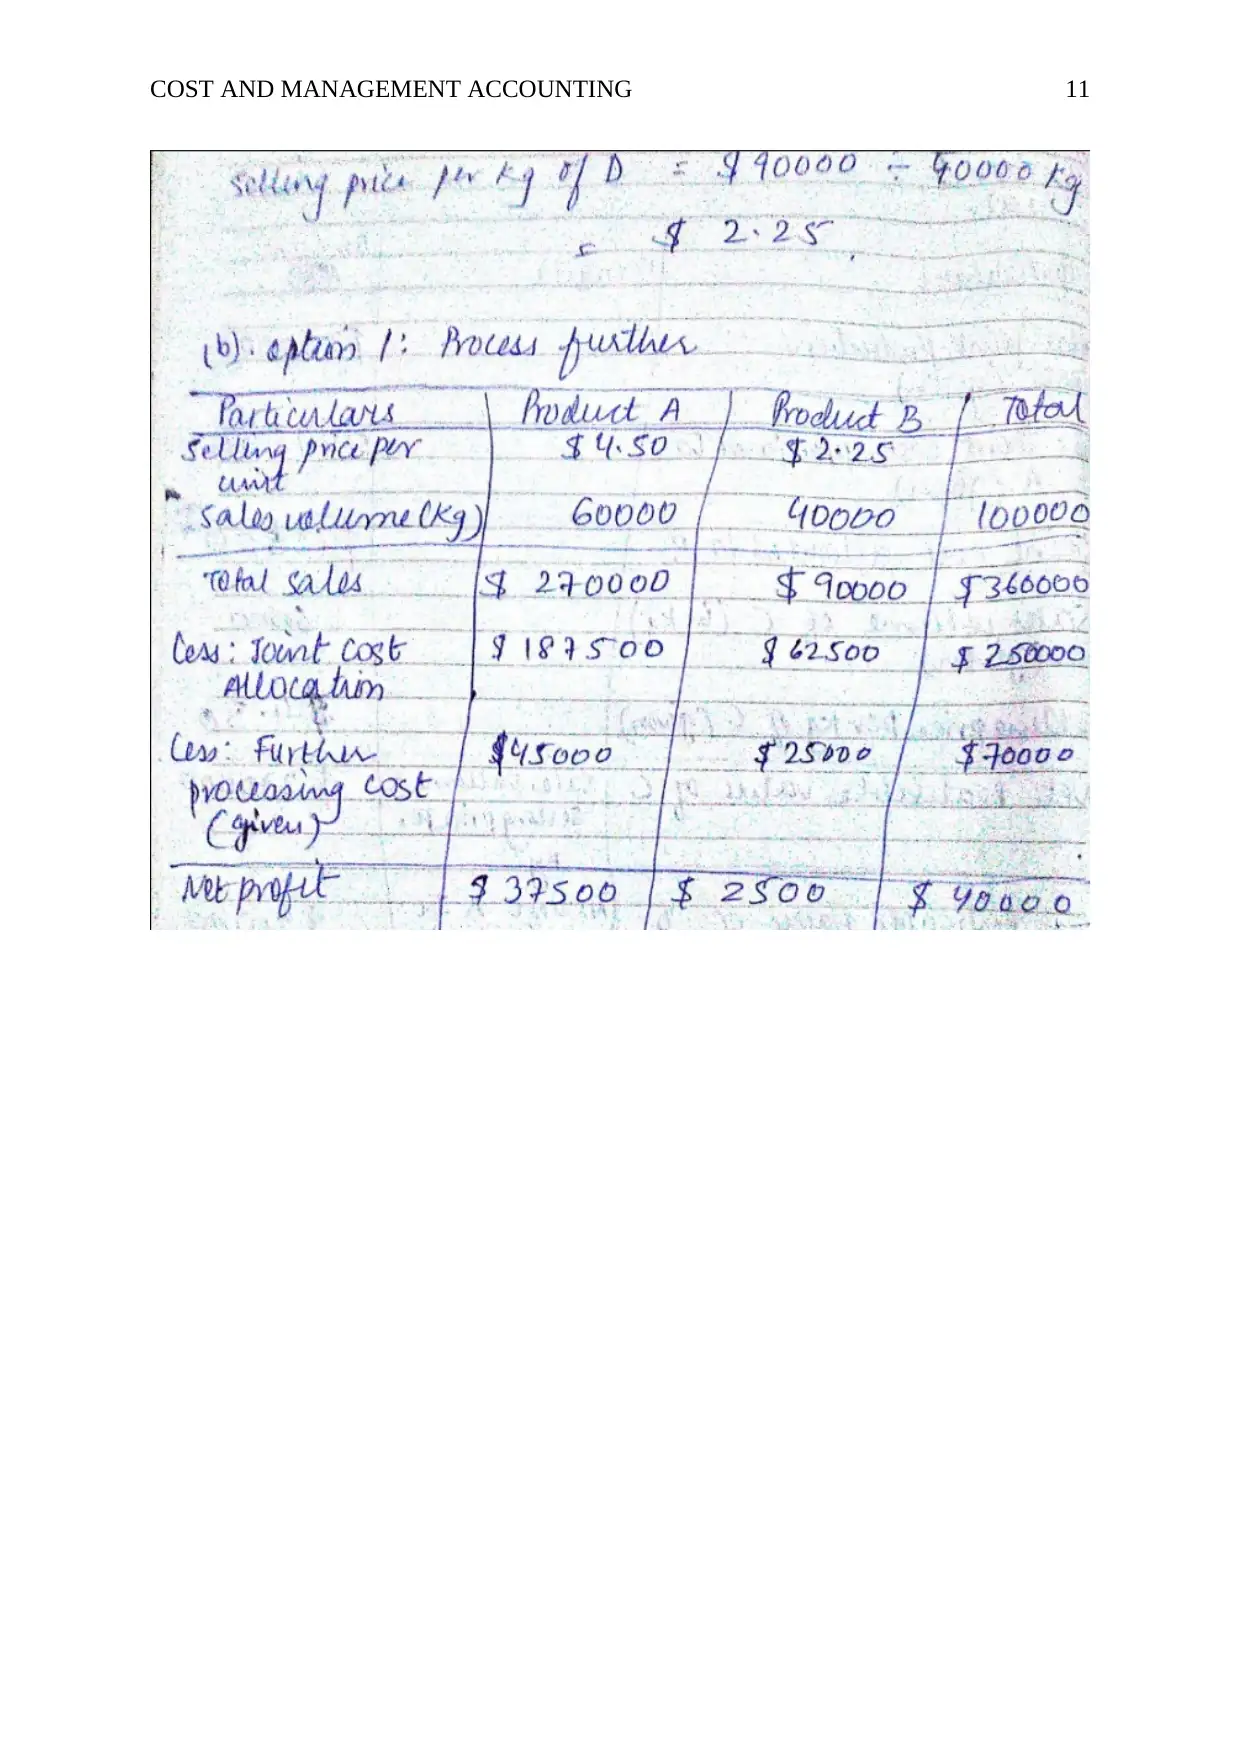 COST AND MANAGEMENT ACCOUNTING 11
Selling price per kg of D = $ 90000 ÷ 40000 kg
= $ 2.25
(b). option 1: Process further
Particulars Product A Product B Total
Selling price per $ 4.50 $ 2.25
unit
Sales volume (kg) 60000 40000 100000
Total sales $ 270000 $ 90000 $ 360000
Less: Joint cost $ 187500 $ 62500 $ 250000
Allocation
Less: Further $45000 $ 25000 $ 70000
processing cost
(given)
Net profit $ 37500 $ 2500 $ 40000